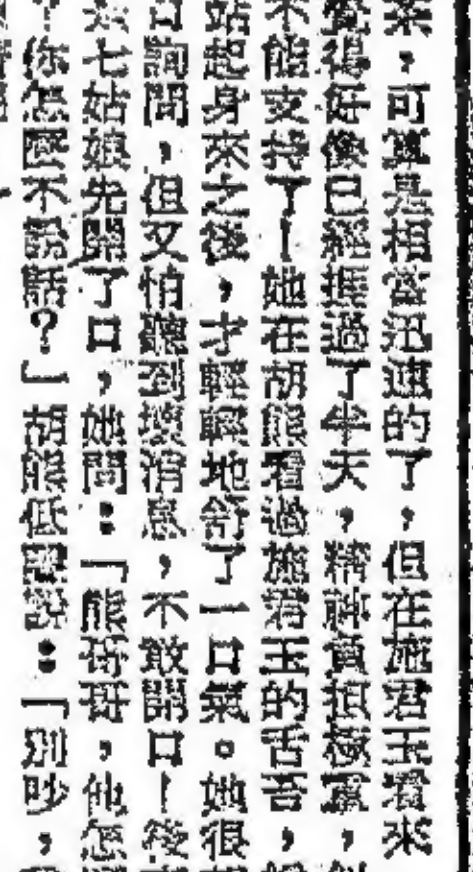 來，可算是相當迅速的了，但在施君玉看來
覺得好像已經捱過了半天，精神負損極重，似
不能支持了！她在胡熊看過施君玉的舌苔，
站起身來之後，才輕輕地舒了一口氣。她很
口詢問，但又怕聽到壞消息，不敢開口！後
七姑娘先開了口，她問：「熊哥哥，他怎
？你怎麼不說話？」胡熊低聲說：「別吵，